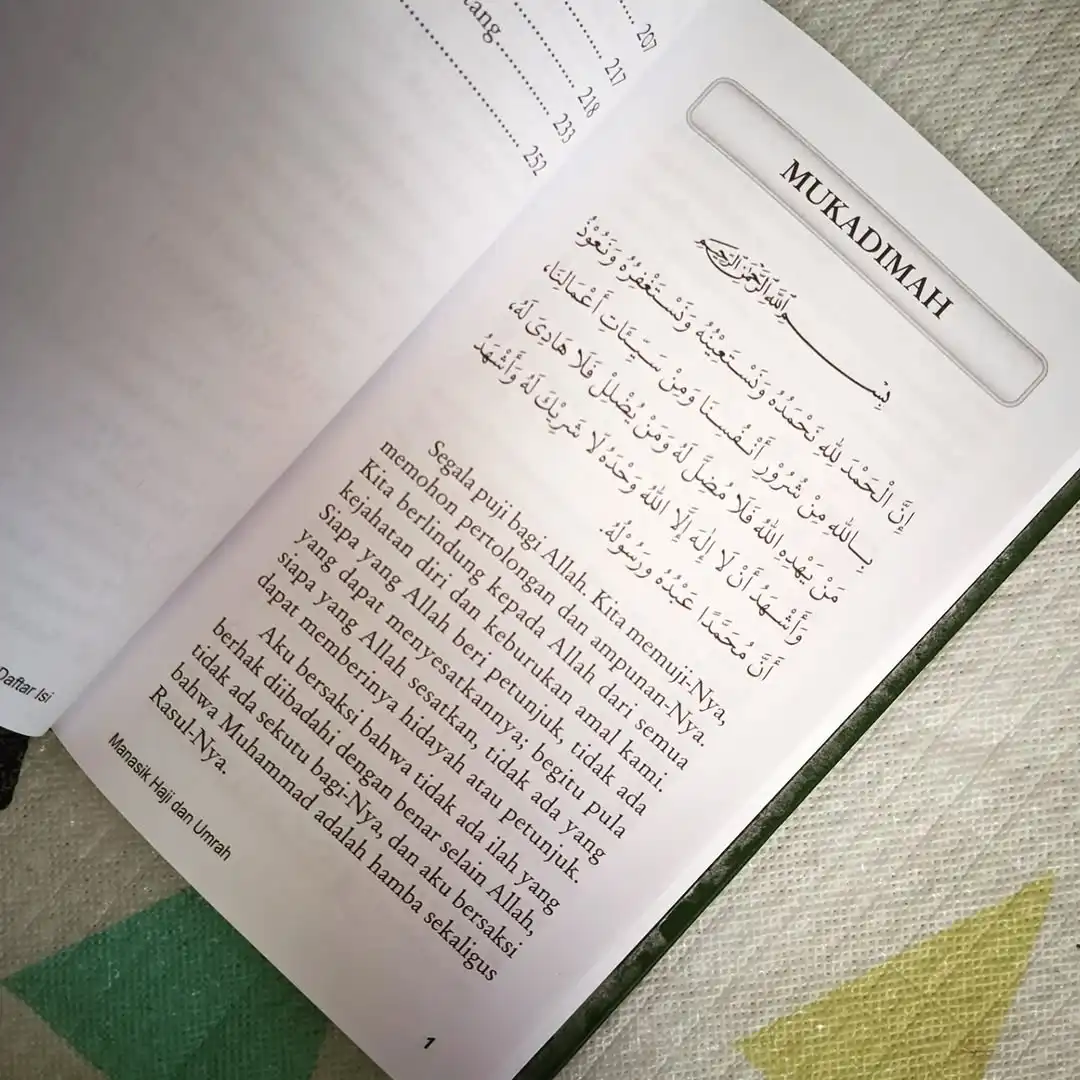 207
217
218
233
252
Daftar Isi
MUKADIMAH
بِسْمِ اللهِ الرَّحْمٰنِ الرَّحِيْمِ
إِنَّ الْحَمْدَ لِلّٰهِ نَحْمَدُهُ وَنَسْتَعِيْنُهُ وَنَسْتَغْفِرُهُ وَنَعُوْذُ
بِاللهِ مِنْ شُرُوْرِ أَنْفُسِنَا وَمِنْ سَيِّئَاتِ أَعْمَالِنَا،
مَنْ يَهْدِهِ اللهُ فَلَا مُضِلَّ لَهُ وَمَنْ يُضْلِلْ فَلَا هَادِىَ لَهُ،
وَأَشْهَدُ أَنْ لَا إِلٰهَ إِلَّا اللهُ وَحْدَهُ لَا شَرِيْكَ لَهُ وَأَشْهَدُ
أَنَّ مُحَمَّدًا عَبْدُهُ وَرَسُوْلُهُ.
Segala puji bagi Allah. Kita memuji-Nya,
memohon pertolongan dan ampunan-Nya.
Kita berlindung kepada Allah dari semua
kejahatan diri dan keburukan amal kami.
Siapa yang Allah beri petunjuk, tidak ada
yang dapat menyesatkannya; begitu pula
siapa yang Allah sesatkan, tidak ada yang
dapat memberinya hidayah atau petunjuk.
Aku bersaksi bahwa tidak ada ilah yang
berhak diibadahi dengan benar selain Allah,
tidak ada sekutu bagi-Nya, dan aku bersaksi
bahwa Muhammad adalah hamba sekaligus
Rasul-Nya.
Manasik Haji dan Umrah
1